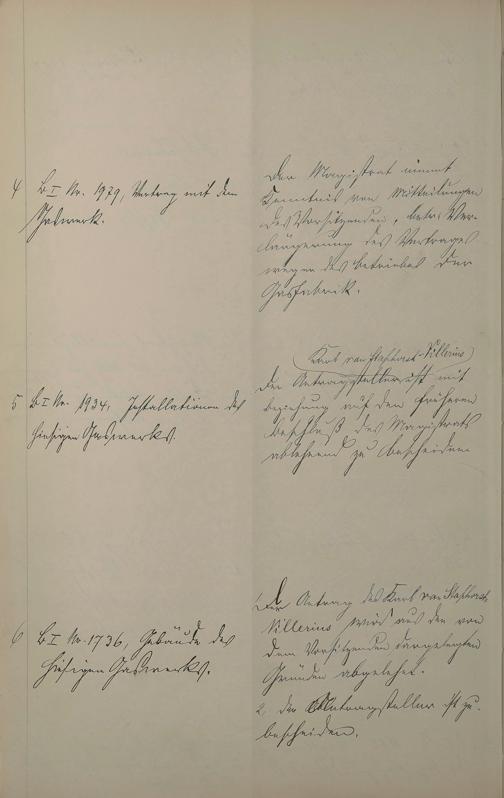 4 B I Nr. 1979, Vertrag mit dem
Gaswerk.
Der Magistrat nimmt
Kenntnis von Mitteilungen
des Vorsitzenden, betr. Ver-
längerung des Vertrages
wegen des Betriebes der
Gasfabrik.
5 B I Nr. 1934, Installationen des
hiesigen Gaswerks.
(Karb van Staphorst-Villerius)
Der Antragsteller ist mit
Beziehung auf den früheren
Beschluß des Magistrats
ablehnend zu bescheiden
6 B I Nr. 1736, Gebäude des
hiesigen Gaswerks.
Der Antrag des Karb van Staphorst
Villerius wird aus den von
dem Vorsitzenden dargelegten
Gründen abgelehnt.
2. der Antragsteller ist zu
bescheiden.